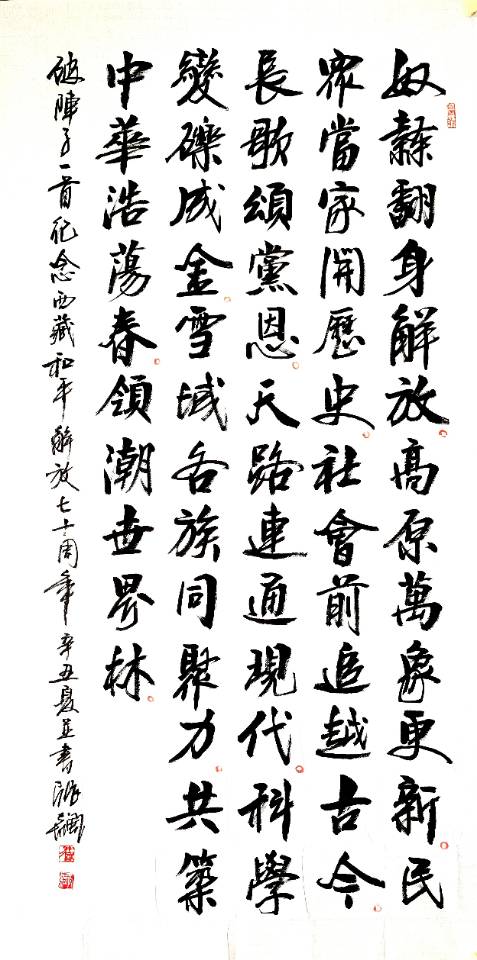 奴隸翻身解放高原萬象更新民
眾當家開歷史社會前追越古今
長歌頌黨恩天路連通現代科學
變礫成金雪域各族同聚力共築
中華浩蕩春領潮世界林
破陣子一首紀念西藏和平解放七十周年辛丑夏並書